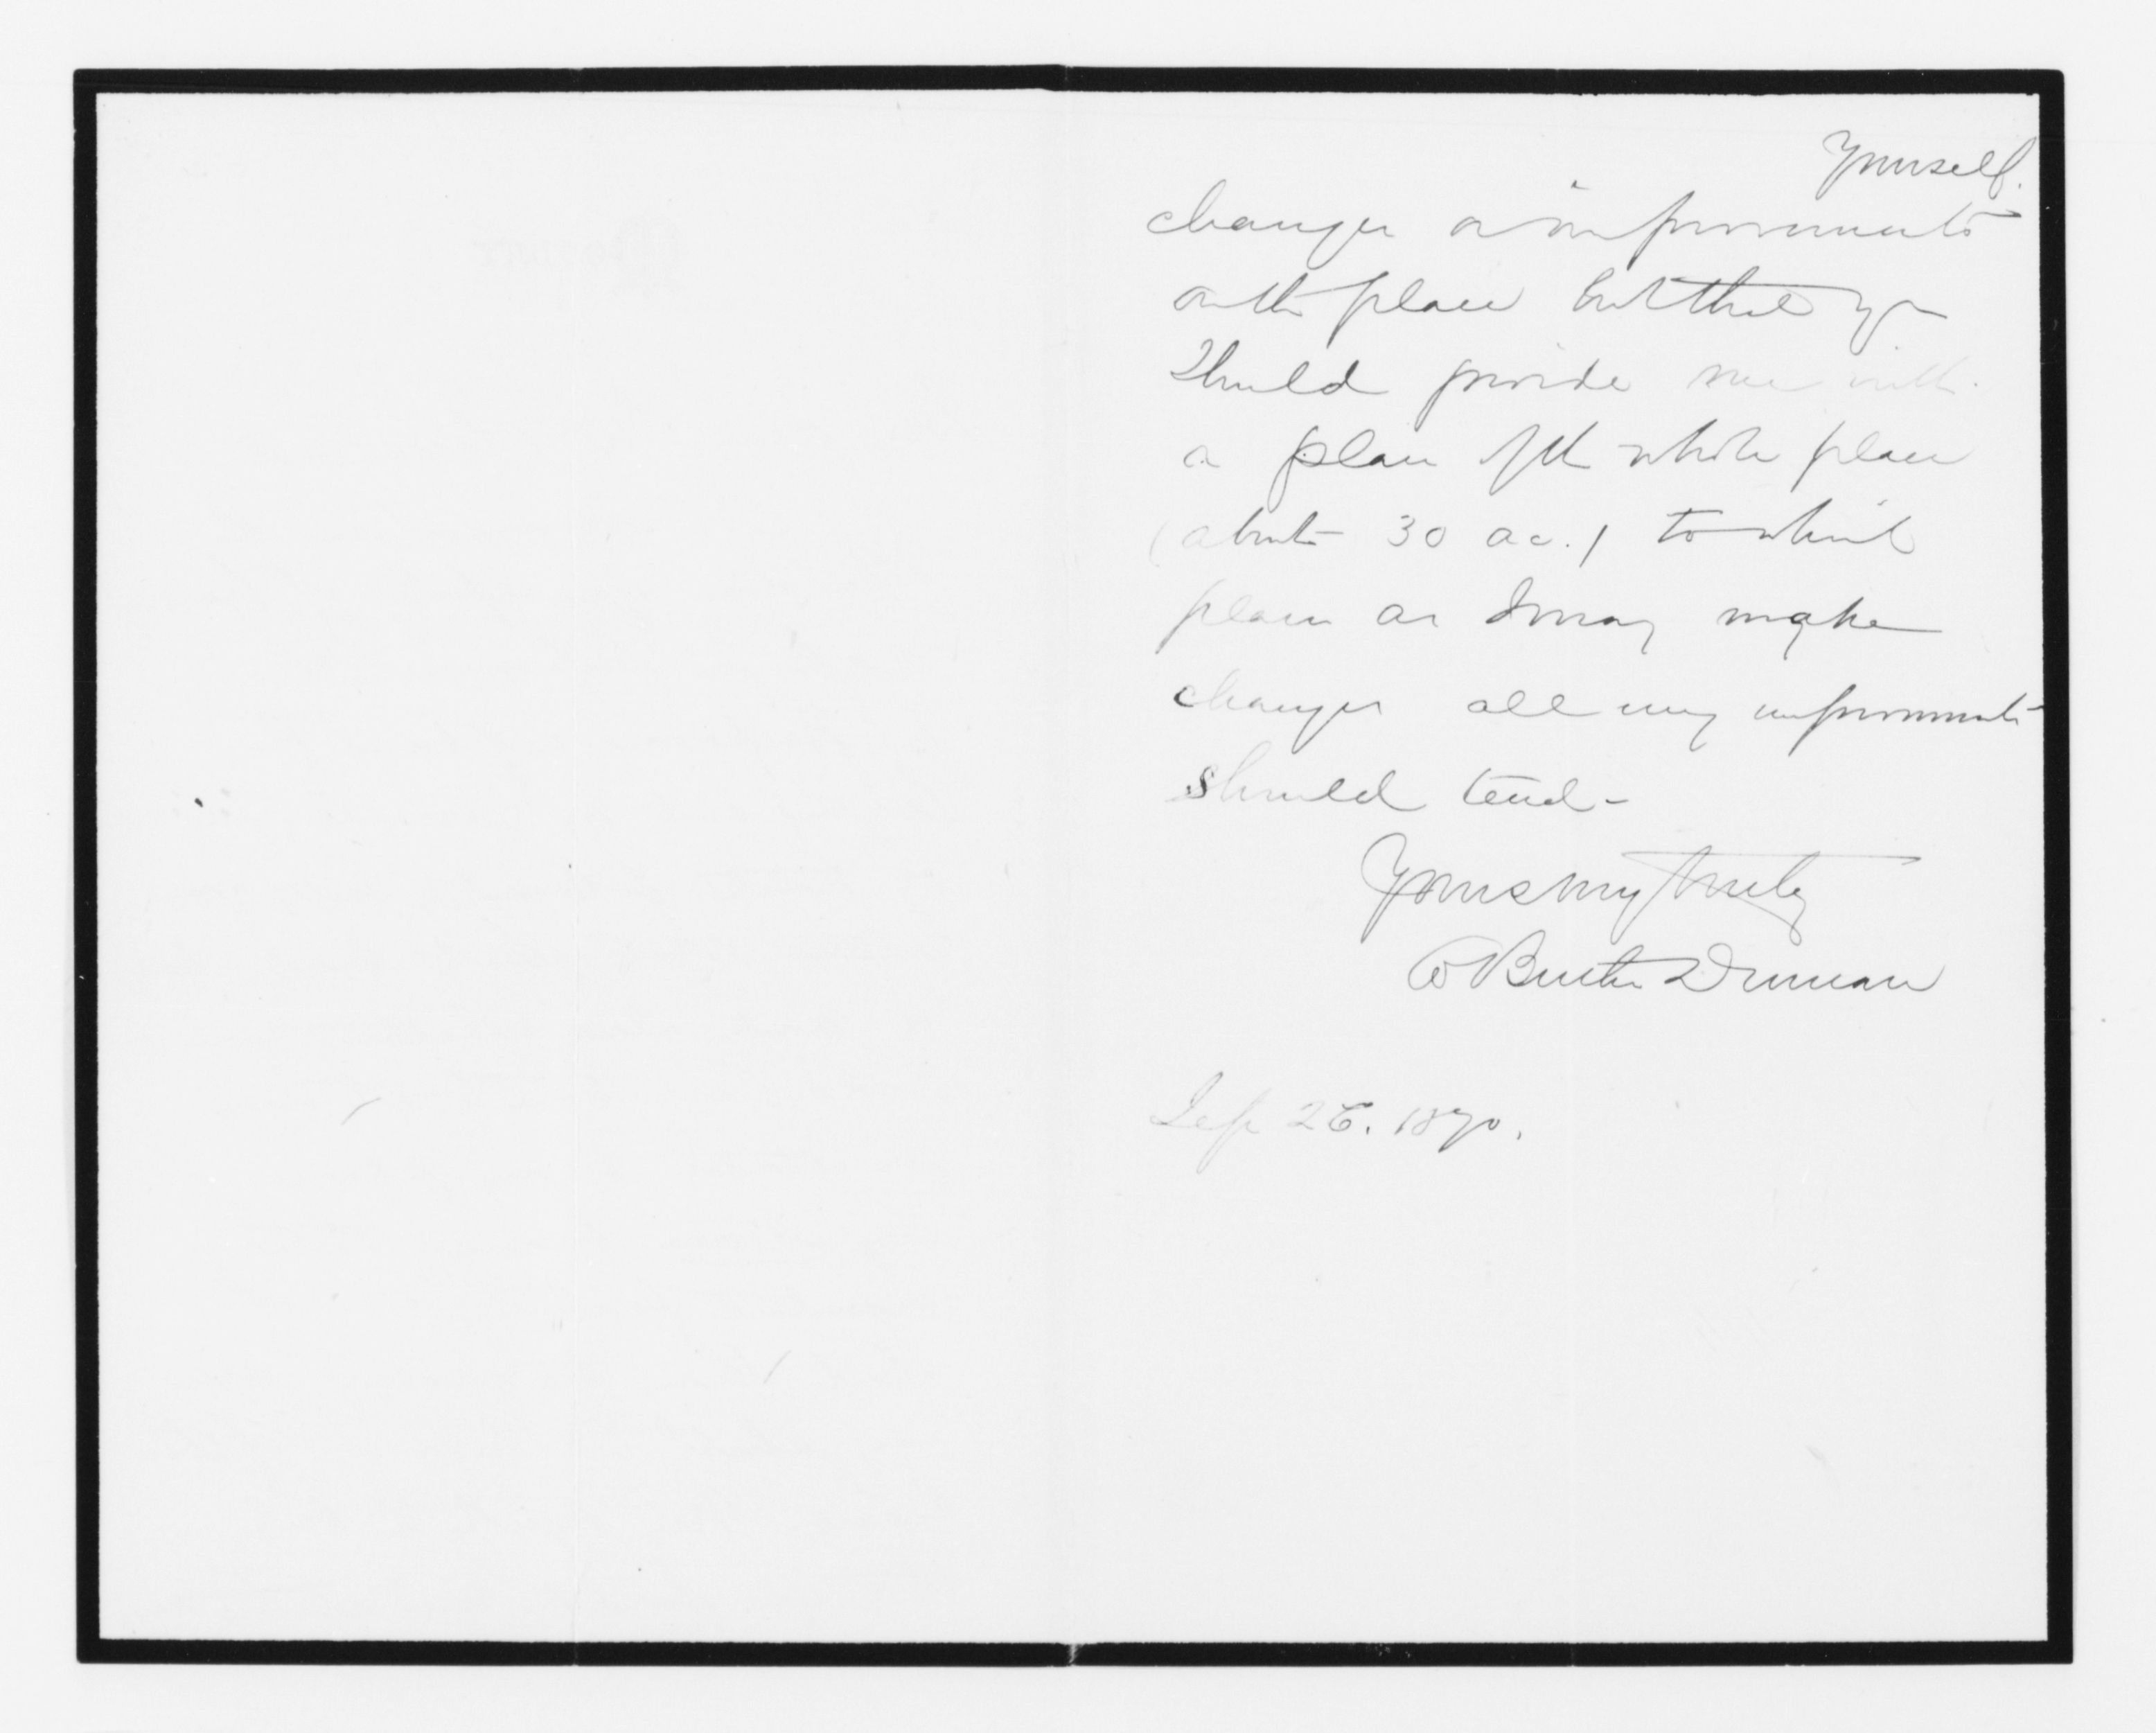 yourself.
changes or improvements
on the place but that you
should provide me with
a plan of the whole place
(about 30 ac.) to which
plan as I may make
changes all my improvements
should tend -
Yours very truly
W Butler Duncan
Sep 26. 1870.